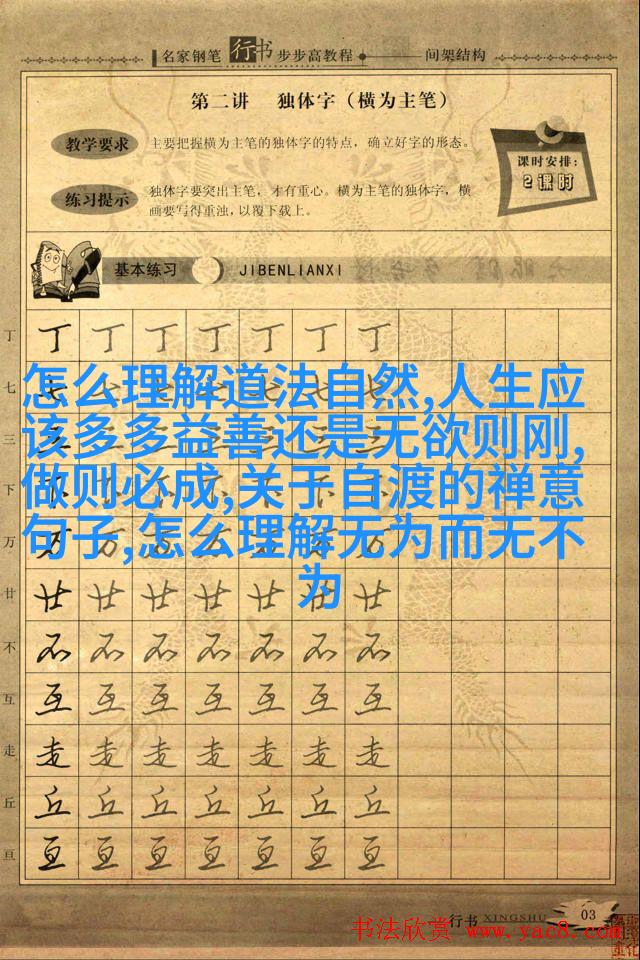 名家钢笔行书步步高教程 间架结构
第二讲 独体字（横为主笔）
教学要求 主要把握横为主笔的独体字的特点，确立好字的形态。
课时安排：
2课时
练习提示 独体字要突出主笔，才有重心。横为主笔的独体字，横
画要写得重浊，以覆下载上。
基本练习 JIBENLIANXI
丁 丁 丁 丁 丁 丁 丁 丁
怎么理解道法自然,人生应
该多多益善还是无欲则刚,
做则必成,关于自渡的禅意
句子,怎么理解无为而无不
为
七
三
下
万
廿 廿 廿 廿 廿 廿 廿 廿
不 不 不 不 不 不 不 不
互 互 互 互 互 互 互 互
走 走 走 走 走 走 走 走
丘 丘 丘 丘 丘 丘 丘 丘
亘 亘 亘 亘 亘 亘 亘 亘
行书 XINGSHU 03
书法欣赏 www.yac8.com